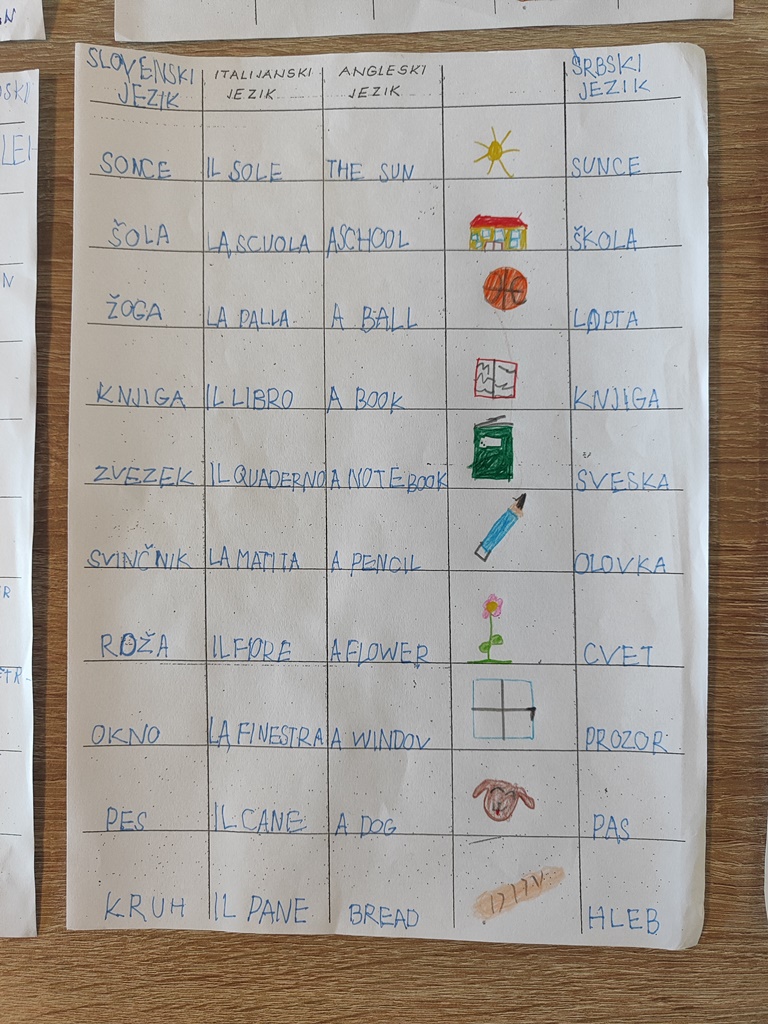 SLOVENSKI JEZIK ITALIJANSKI JEZIK ANGLESKI JEZIK SRBSKI JEZIK
SONCE IL SOLE THE SUN SUNCE
ŠOLA LA SCUOLA A SCHOOL ŠKOLA
ŽOGA LA PALLA A BALL LOPTA
KNJIGA IL LIBRO A BOOK KNJIGA
ZVEZEK IL QUADERNO A NOTEBOOK SVESKA
SVINČNIK LA MATITA A PENCIL OLOVKA
ROŽA IL FIORE A FLOWER CVET
OKNO LA FINESTRA A WINDOV PROZOR
PES IL CANE A DOG PAS
KRUH IL PANE BREAD HLEB